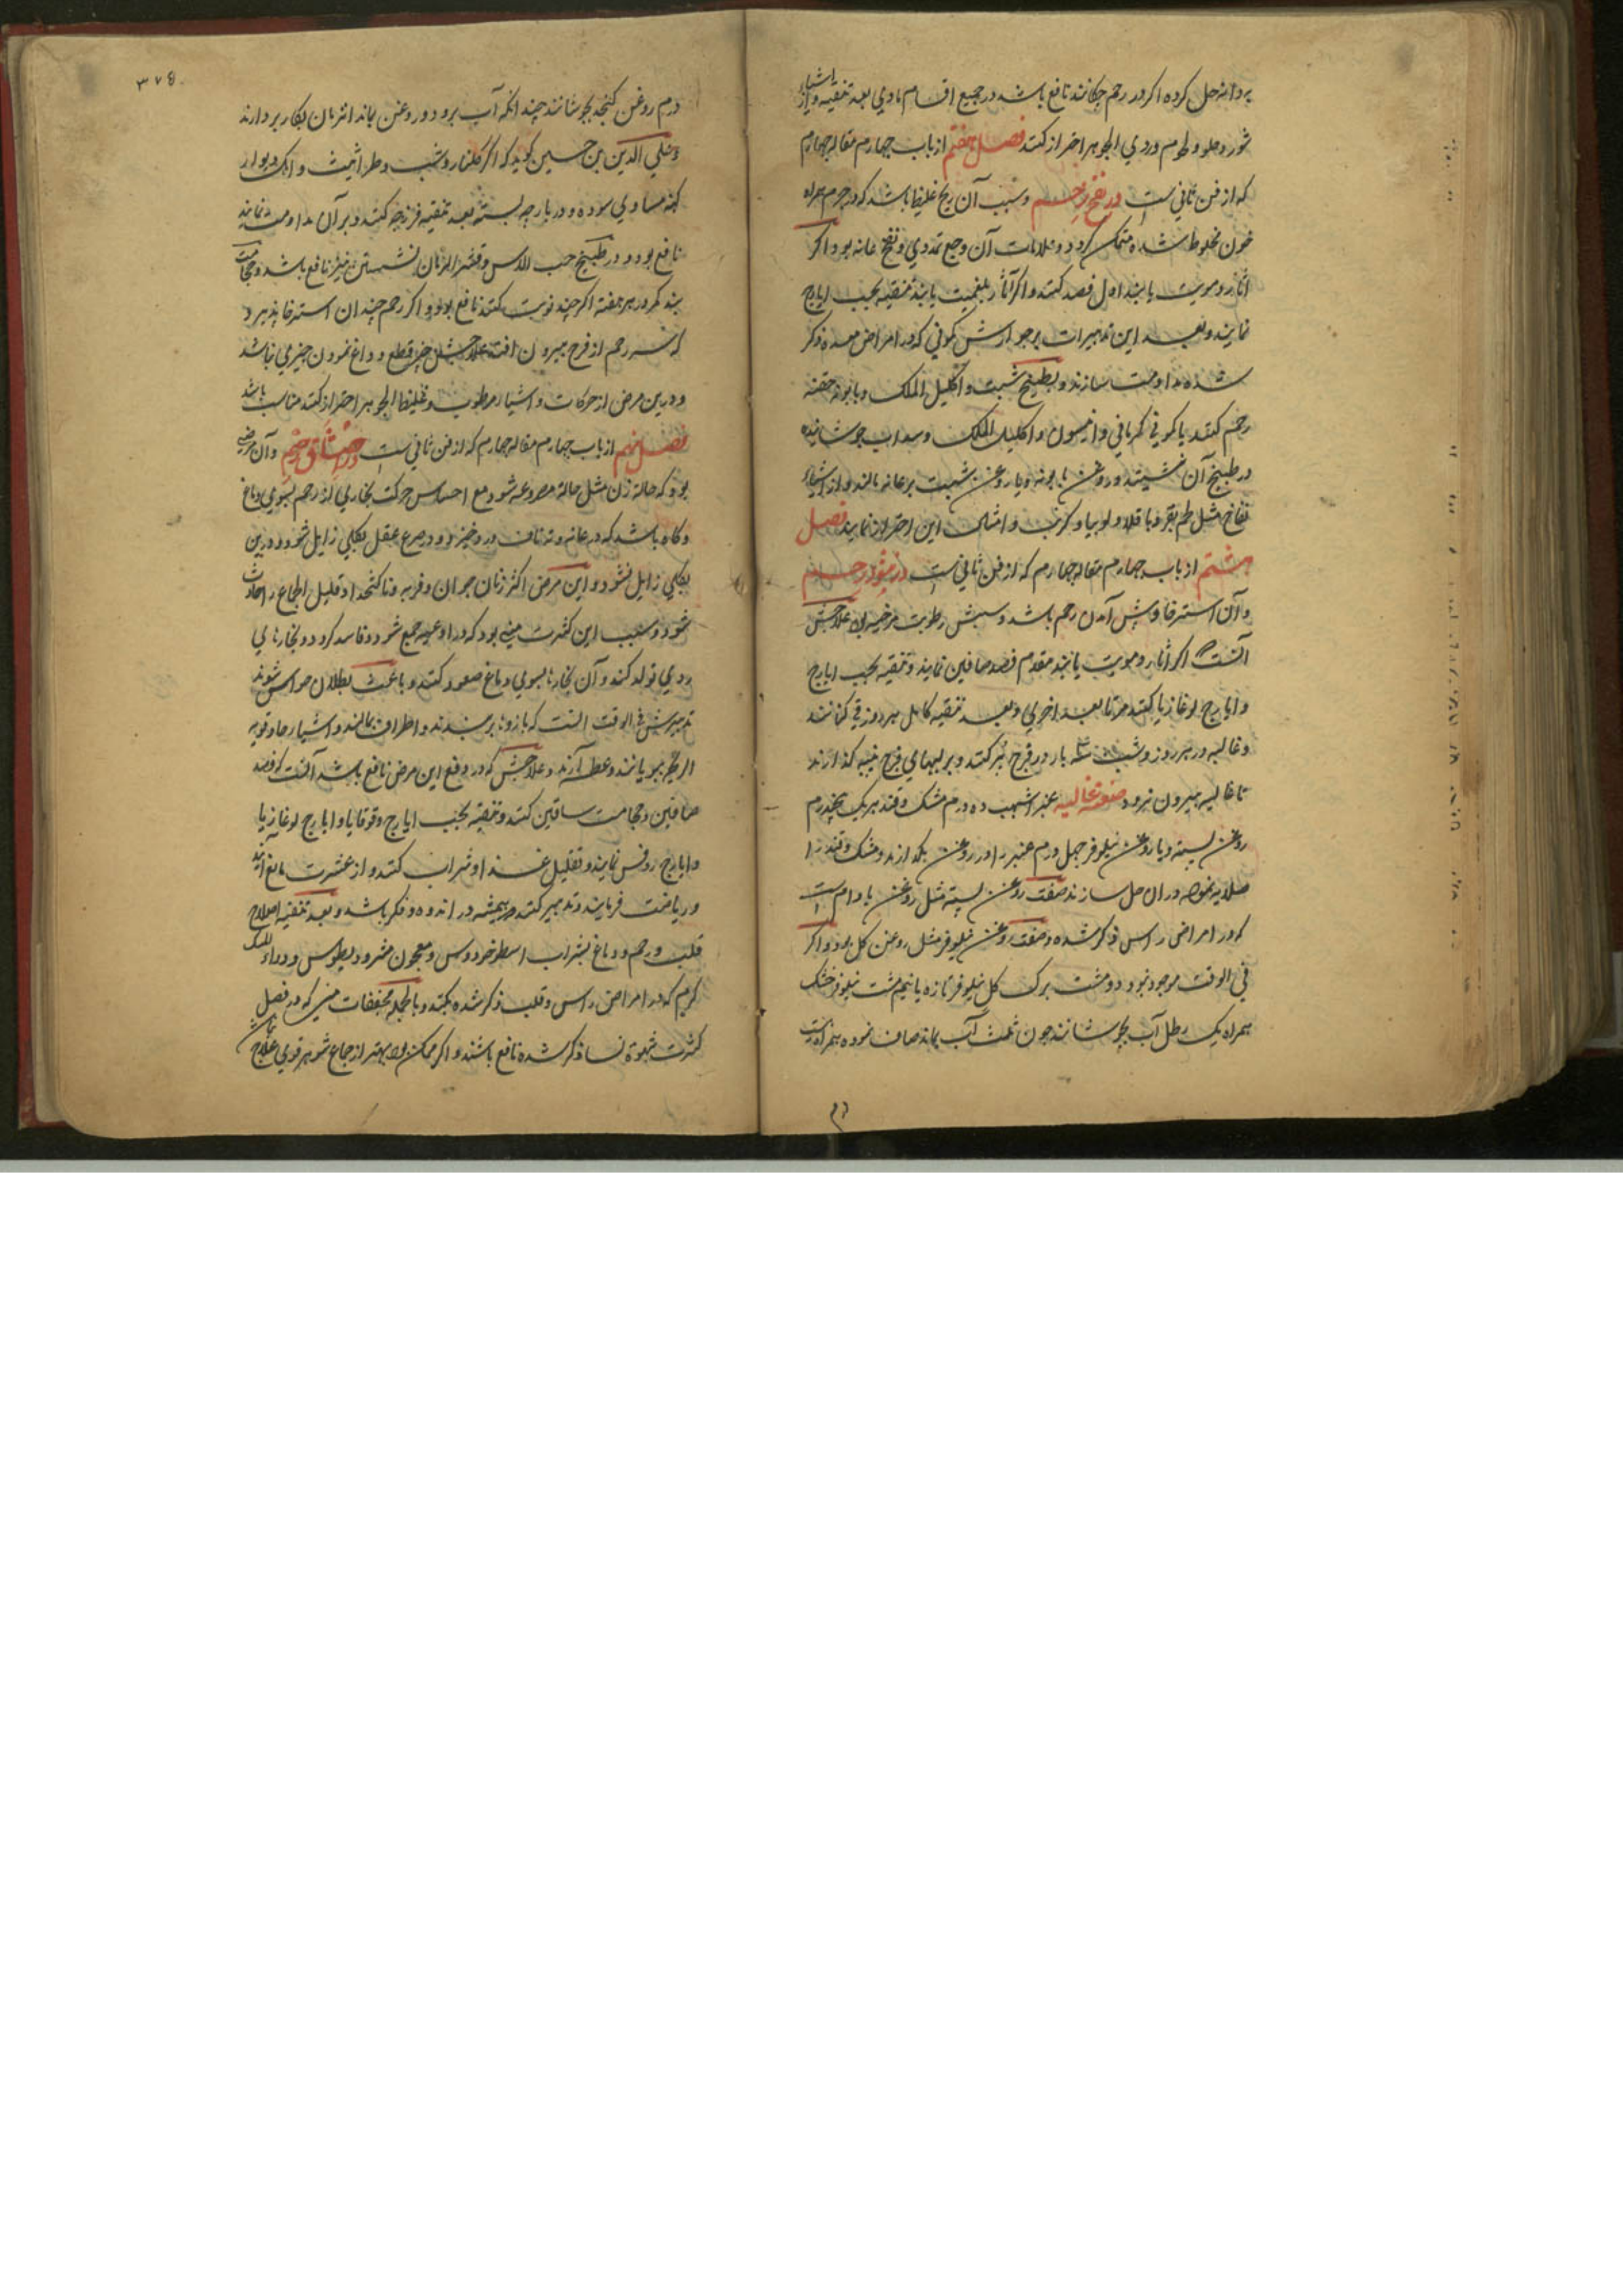 بروانه حل کرده اکر در رحم چکانند نافع باشد در جمیع اقسام مادی بعد تنقیه و از اشیاء
شور و حلو و لحوم وردی الجوهر احتراز کنند فصل هفتم از باب چهارم مقاله چهارم
که از فن ثانی ست در نفخ رحم و سبب آن ریح غلیظ باشد که در جرم همراه
خون مخلوط شده متمکن کردد و علامات آن وجع تمددی و نفخ عانه بود اکر
آثار دمویت یابند اول فصد کنند و اکر آثار بلغمیت یابند تنقیه بحب ایارج
نمایند و بعد این تدبیرات بر جوارش کمونی که در امراض معده ذکر
شده مداومت سازند و بطبیخ شبت و اکلیل الملک و بابونه حقنه
رحم کنند یا کمونی کرمانی و انیسون و اکلیل الملک و سداب جوشانیده
در طبیخ آن نشینند و روغن بابونه و یا روغن شبت بر عانه مالند و از اشیاء
نفاخ مثل لحم بقر و باقلا و لوبیا و کرنب و امثال این احتراز نمایند فصل
هشتم از باب چهارم مقاله چهارم که از فن ثانی ست در نتو رحم
و آن استرخا و پیش آمدن رحم باشد و سببش رطوبت مرخیه بود علاجش
آنست اکر آثار دمویت یابند مقدم فصد صافین نمایند و تنقیه بحب ایارج
و ایارج لوغازیا کنند مرتا بعد اخری و بعد تنقیه کامل هر روز قی کنانند
و غالیه در هر روز و شب سه بار در فرج پر کنند و بر لبهای فرج پنبه کذارند
تا غالیه بیرون نرود صفت غالیه عنبر اشهب ده درم مشک و قند هر یک پنجدرم
روغن پسته و یا روغن نیلوفر چهل درم عنبر را در روغن بکدازند و مشک و قند را
صلایه نموده در ان حل سازند صفت روغن پسته مثل روغن بادام ست
که در امراض راس ذکر شده و صفت روغن نیلوفر مثل روغن کل بود و اکر
فی الوقت موجود نبود دو مشت برک کل نیلوفر تازه یا نیم مشت نیلوفر خشک
همراه یک رطل آب بجوشانند چون ثلث آب بماند صاف نموده همراه بست
۳۷۵
درم روغن کنجد بجوشانند چندانکه آب برود و روغن بماند انزمان بکار بردارند
و علی الدین بن حسین کوید که اکر کلنار و شب و طراثیث و آبک دیوار
کهنه مساوی سوده و در پارچه بسته بعد تنقیه فرزجه کنند و بر آن مداومت نمایند
نافع بود و در طبیخ حب الاس و قشر الرمان نشستن نیز نافع باشد و حجامت
بند کمر در هر هفته اکر چند نوبت کنند نافع بود و اکر رحم چندان استرخا پذیرد
که سر رحم از فرج بیرون افتد علاجش جز قطع و داغ نمودن چیزی نباشد
و درین مرض از حرکات و اشیاء مرطوب و غلیظ الجوهر احتراز کنند مناسب باشد
فصل نهم از باب چهارم مقاله چهارم که از فن ثانی ست در اختناق رحم و آن مرضی
بود که حاله زن مثل حاله مصروعه شود مع احساس حرکت بخاری از رحم بسوی دماغ
و کاه باشد که در عانه و ناف درد خیزد و در صرع عقل بکلی زایل شود و درین
بکلی زایل نشود و این مرض اکثر زنان جوان و فربه و ناکتخدا و قلیل الجماع را حادث
شود و سبب این کثرت منی بود که در اوعیه جمع شود و فاسد کردد و بخارهای
ردی تولد کند و آن بخارها بسوی دماغ صعود کنند و باعث بطلان حواس شوند
تدبیرش فی الوقت آنست که بازوها بر بندند و اطراف بمالند و اشیاء حاد قویه
الریح ببویانند و عطسه آرند و علاجش که در دفع این مرض نافع باشد آنست که فصد
صافین و حجامت ساقین کنند و تنقیه بحب ایارج و قوقایا و ایارج لوغازیا
و ایارج روفس نمایند و تقلیل غذا و شراب کنند و از عشرت مانع آیند
و ریاضت فرمایند و تدبیر کنند که همیشه در اندوه و فکر باشد و بعد تنقیه اصلاح
قلب و رحم و دماغ بشراب اسطوخودوس و معجون مثرودیطوس و دواء المسک
کرم که در امراض راس و قلب ذکر شده بکنند و بالجمله مجففات منی که در فصل
کثرت شهوة نسا ذکر شده نافع باشند و اکر ممکن بود بهتر از جماع شوهر قوی علاج نباشد